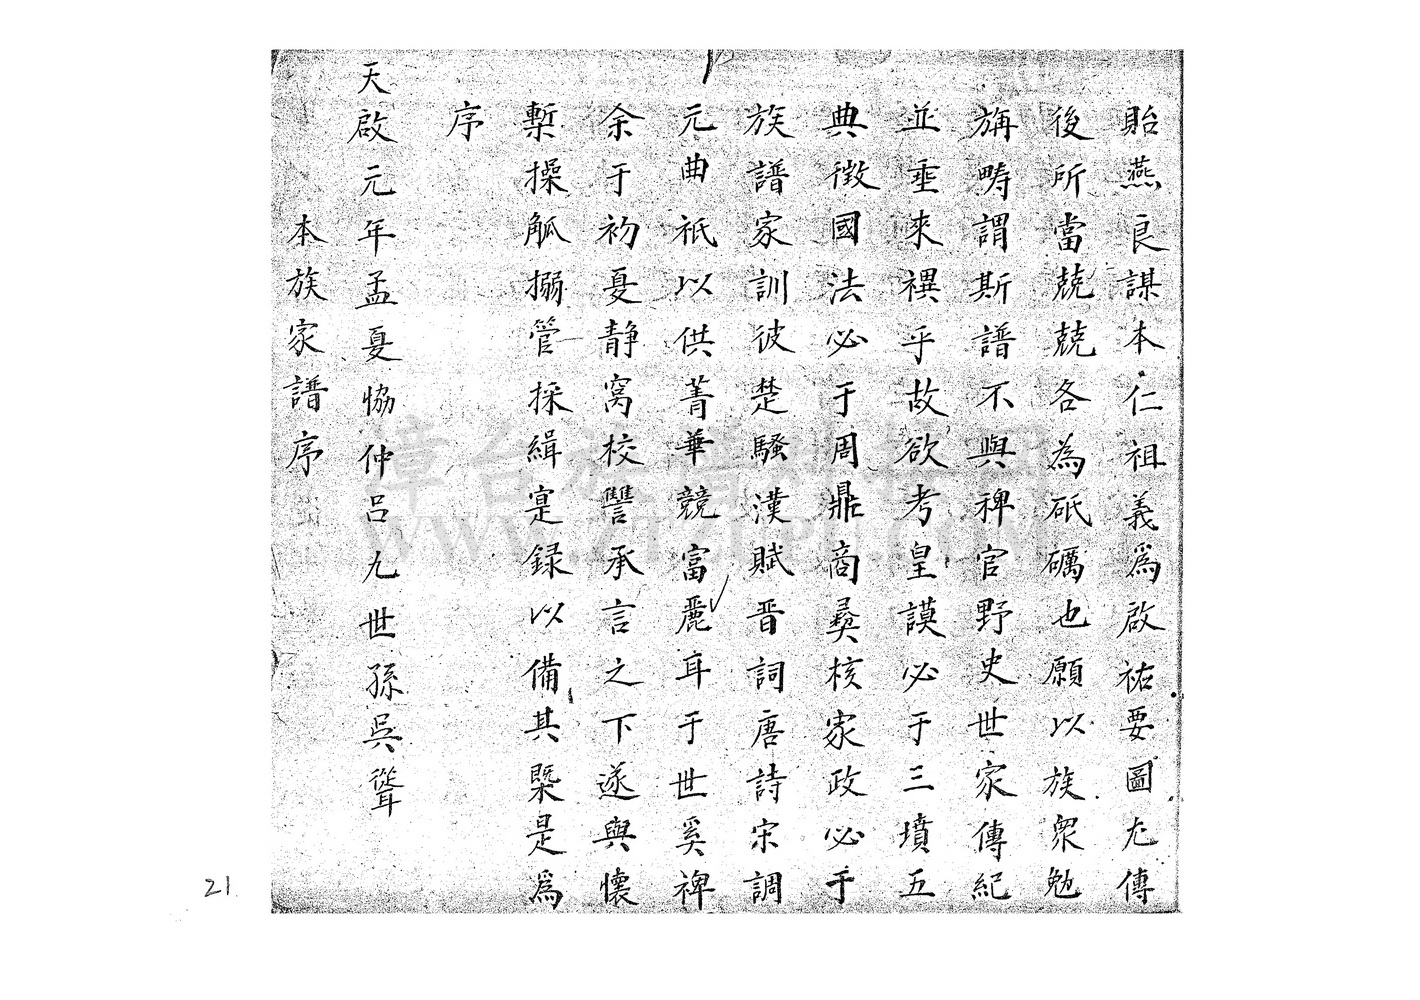 貽燕良謀本仁祖義為啟祐要圖尤傳
後所當兢兢各為砥礪也願以族眾勉
旃疇謂斯譜不與稗官野史世家傳紀
並垂來禩乎故欲考皇謨必于三墳五
典徵國法必于周鼎商彝核家政必于
族譜家訓彼楚騷漢賦晉詞唐詩宋調
元曲祇以供菁華競富麗耳于世奚裨
余于初夏靜窩校讐承言之下遂與懷
槧操觚搦管採緝寔錄以備其槩是為
序
天啟元年孟夏恊仲呂九世孫吳聳
本族家譜序
漳台族譜對接網
WWW.ZTZUPU.COM
21